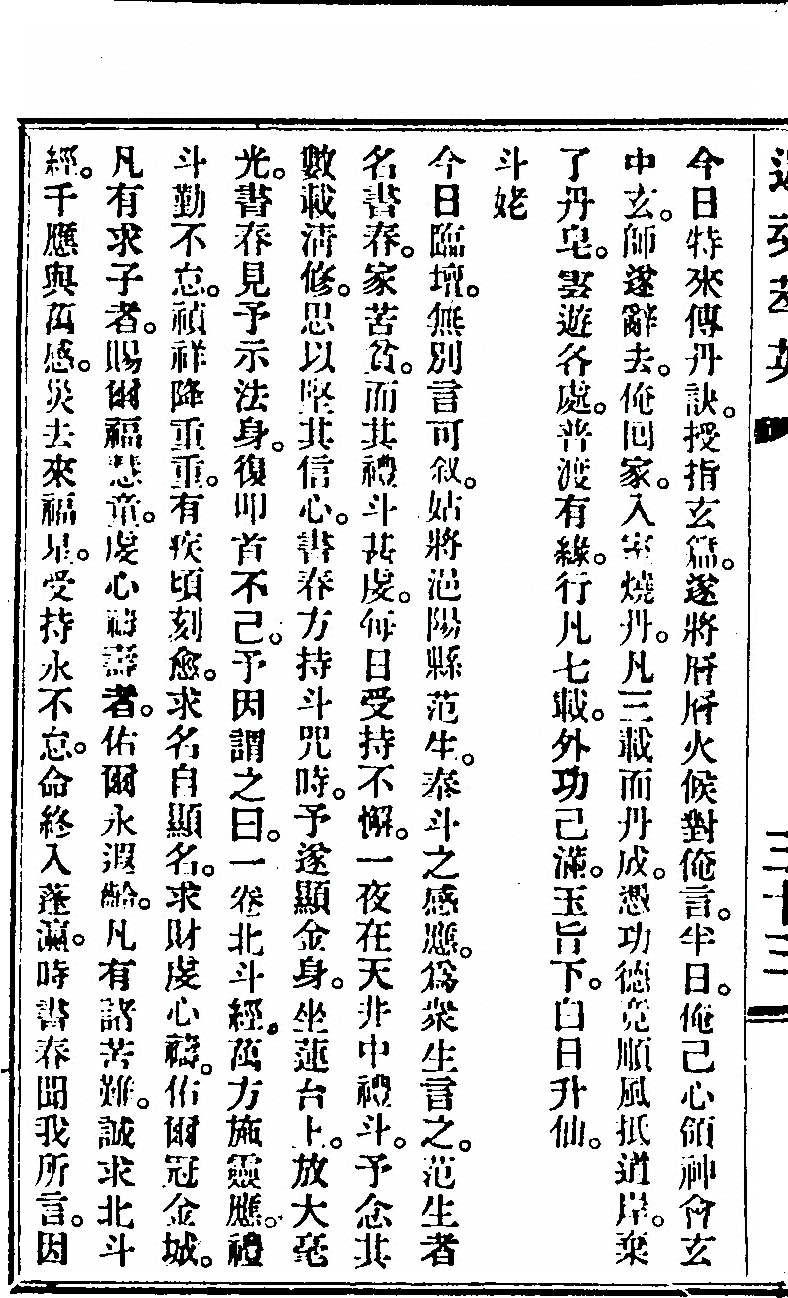 三十三
今日特來傳丹訣。授指玄篇。遂將層層火候對俺言。半日。俺已心領神會玄
中玄。師遂辭去。俺回家。入室燒丹。凡三載而丹成。憑功德竟順風抵道岸。棄
了丹皂。雲遊各處。普渡有緣。行凡七載。外功已滿。玉旨下。白日升仙。
斗姥
今日臨壇。無別言可叙。姑將浥陽縣范生。奉斗之感應。爲衆生言之。范生者
名書春。家苦貧。而其禮斗甚虔。每日受持不懈。一夜在天井中禮斗。予念其
數載清修。思以堅其信心。書春方持斗咒時。予遂顯金身。坐蓮台上。放大毫
光。書春見予示法身。復叩首不已。予因謂之曰。一卷北斗經。萬方施靈應。禮
斗勤不怠。禎祥降重重。有疾頃刻愈。求名自顯名。求財虔心禱。佑爾冠金城。
凡有求子者。賜爾福慧童。虔心禱壽者。佑爾永遐齡。凡有諸苦難。誠求北斗
經。千應與萬感。災去來福星。受持永不怠。命終入蓬瀛。時書春聞我所言。因